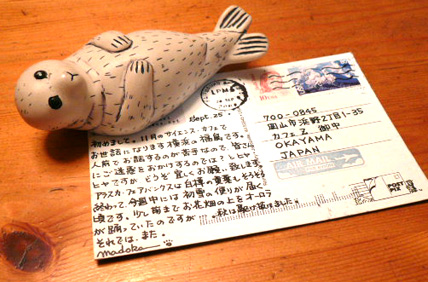 Sept. 25
初めまして。11月のサイエンス・カフェで
お世話になります横浜の福風です。
人前でお話するのが苦手なので、皆さん
にご迷惑をおかけするのでは?とヒヤ
ヒヤですが、どうぞ宜しくお願い致します。
アラスカ・フェアバンクスは白樺の黄葉もそろそろ
終わって、今週中には初雪の便りが届く
頃です。少し前までお花畑の上をオーロラ
が踊っていたのですが…秋は駆け抜けました。
それでは、また。
madoka
700-0845
岡山市浜野2丁目1-35
カフェZ 御中
OKAYAMA
JAPAN
AIR MAIL
POST